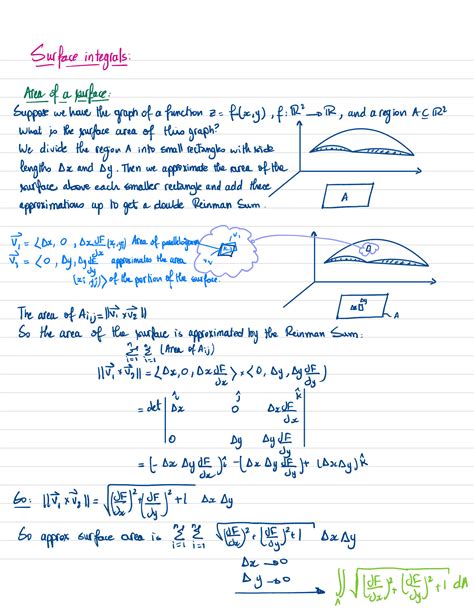 Surface integrals:
Area of a surface:
Suppose we have the graph of a function z = f(x,y), f: ℝ² → ℝ, and a region A ⊆ ℝ²
What is the surface area of this graph?
We divide the region A into small rectangles with side
lengths Δx and Δy. Then we approximate the area of the
surface above each smaller rectangle and add these
approximations up to get a double Reinman Sum.
A
V₁ = ⟨Δx, 0, Δx dF/dx (xi, yj)⟩ Area of parallelogram
V₂ = ⟨0, Δy, Δy dF/dy (xi, yj)⟩ approximates the area
of the portion of the surface.
V₁
V₂
A
The area of Ai,j = ||V₁ × V₂||
So the area of the surface is approximated by the Reinman Sum:
Σ Σ (Area of Aij)
||V₁ × V₂|| = ⟨Δx, 0, Δx dF/dx⟩ × ⟨0, Δy, Δy dF/dy⟩
î ĵ k̂
= det | Δx 0 Δx dF/dx |
0 Δy Δy dF/dy
= (- Δx Δy dF/dx) î - (Δx Δy dF/dy) ĵ + (Δx Δy) k̂
So: ||V₁ × V₂|| = √((dF/dx)² + (dF/dy)² + 1) Δx Δy
So approx surface area is Σ Σ √((dF/dx)² + (dF/dy)² + 1) Δx Δy
Δx → 0
Δy → 0
∬_A √((dF/dx)² + (dF/dy)² + 1) dA